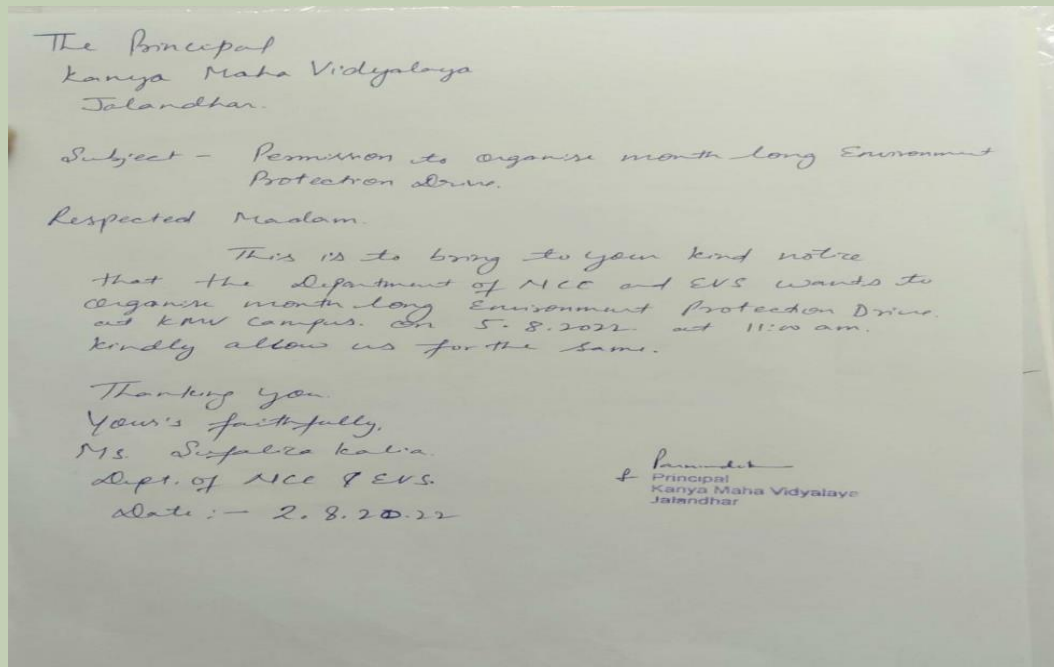 The Principal
Kanya Maha Vidyalaya
Jalandhar.
Subject - Permission to organise month long Environment
Protection Drive.
Respected Madam.
This is to bring to your kind notice
that the Department of NCC and EVS wants to
organise month long Environment Protection Drive.
at KMV campus. on 5.8.2022. at 11:00 am.
kindly allow us for the same.
Thanking you.
Your's faithfully,
Ms. Sufaliza Kalia.
Dept. of NCC & EVS.
Date :- 2.8.20.22
Principal
Kanya Maha Vidyalaya
Jalandhar